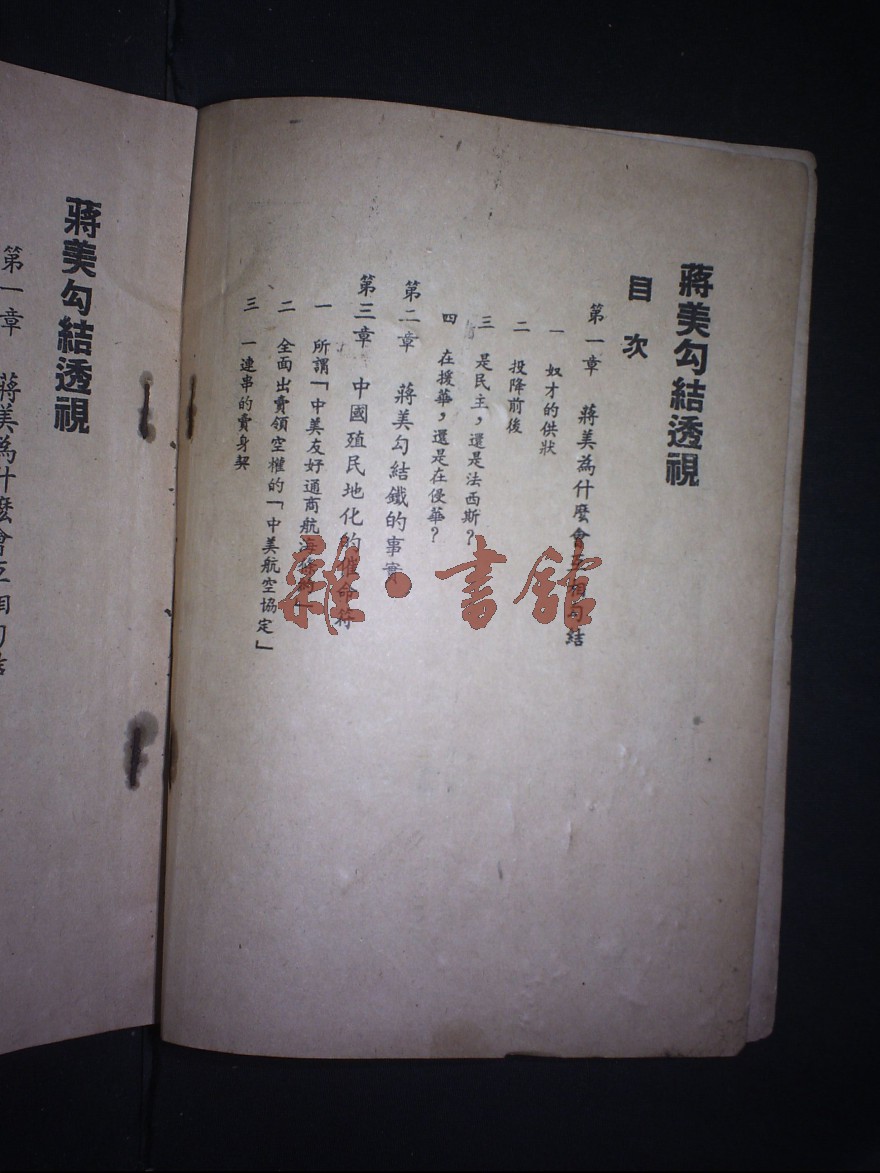 蔣美勾結透視
目次
第一章 蔣美為什麼會互相勾結
一 奴才的供狀
二 投降前後
三 是民主，還是法西斯？
四 在援華，還是在侵華？
第二章 蔣美勾結鐵的事實
第三章 中國殖民地化的催命符
一 所謂「中美友好通商航海條約」
二 全面出賣領空權的「中美航空協定」
三 一連串的賣身契
蔣美勾結透視
第一章 蔣美為什麼會互相勾結
雜·書館